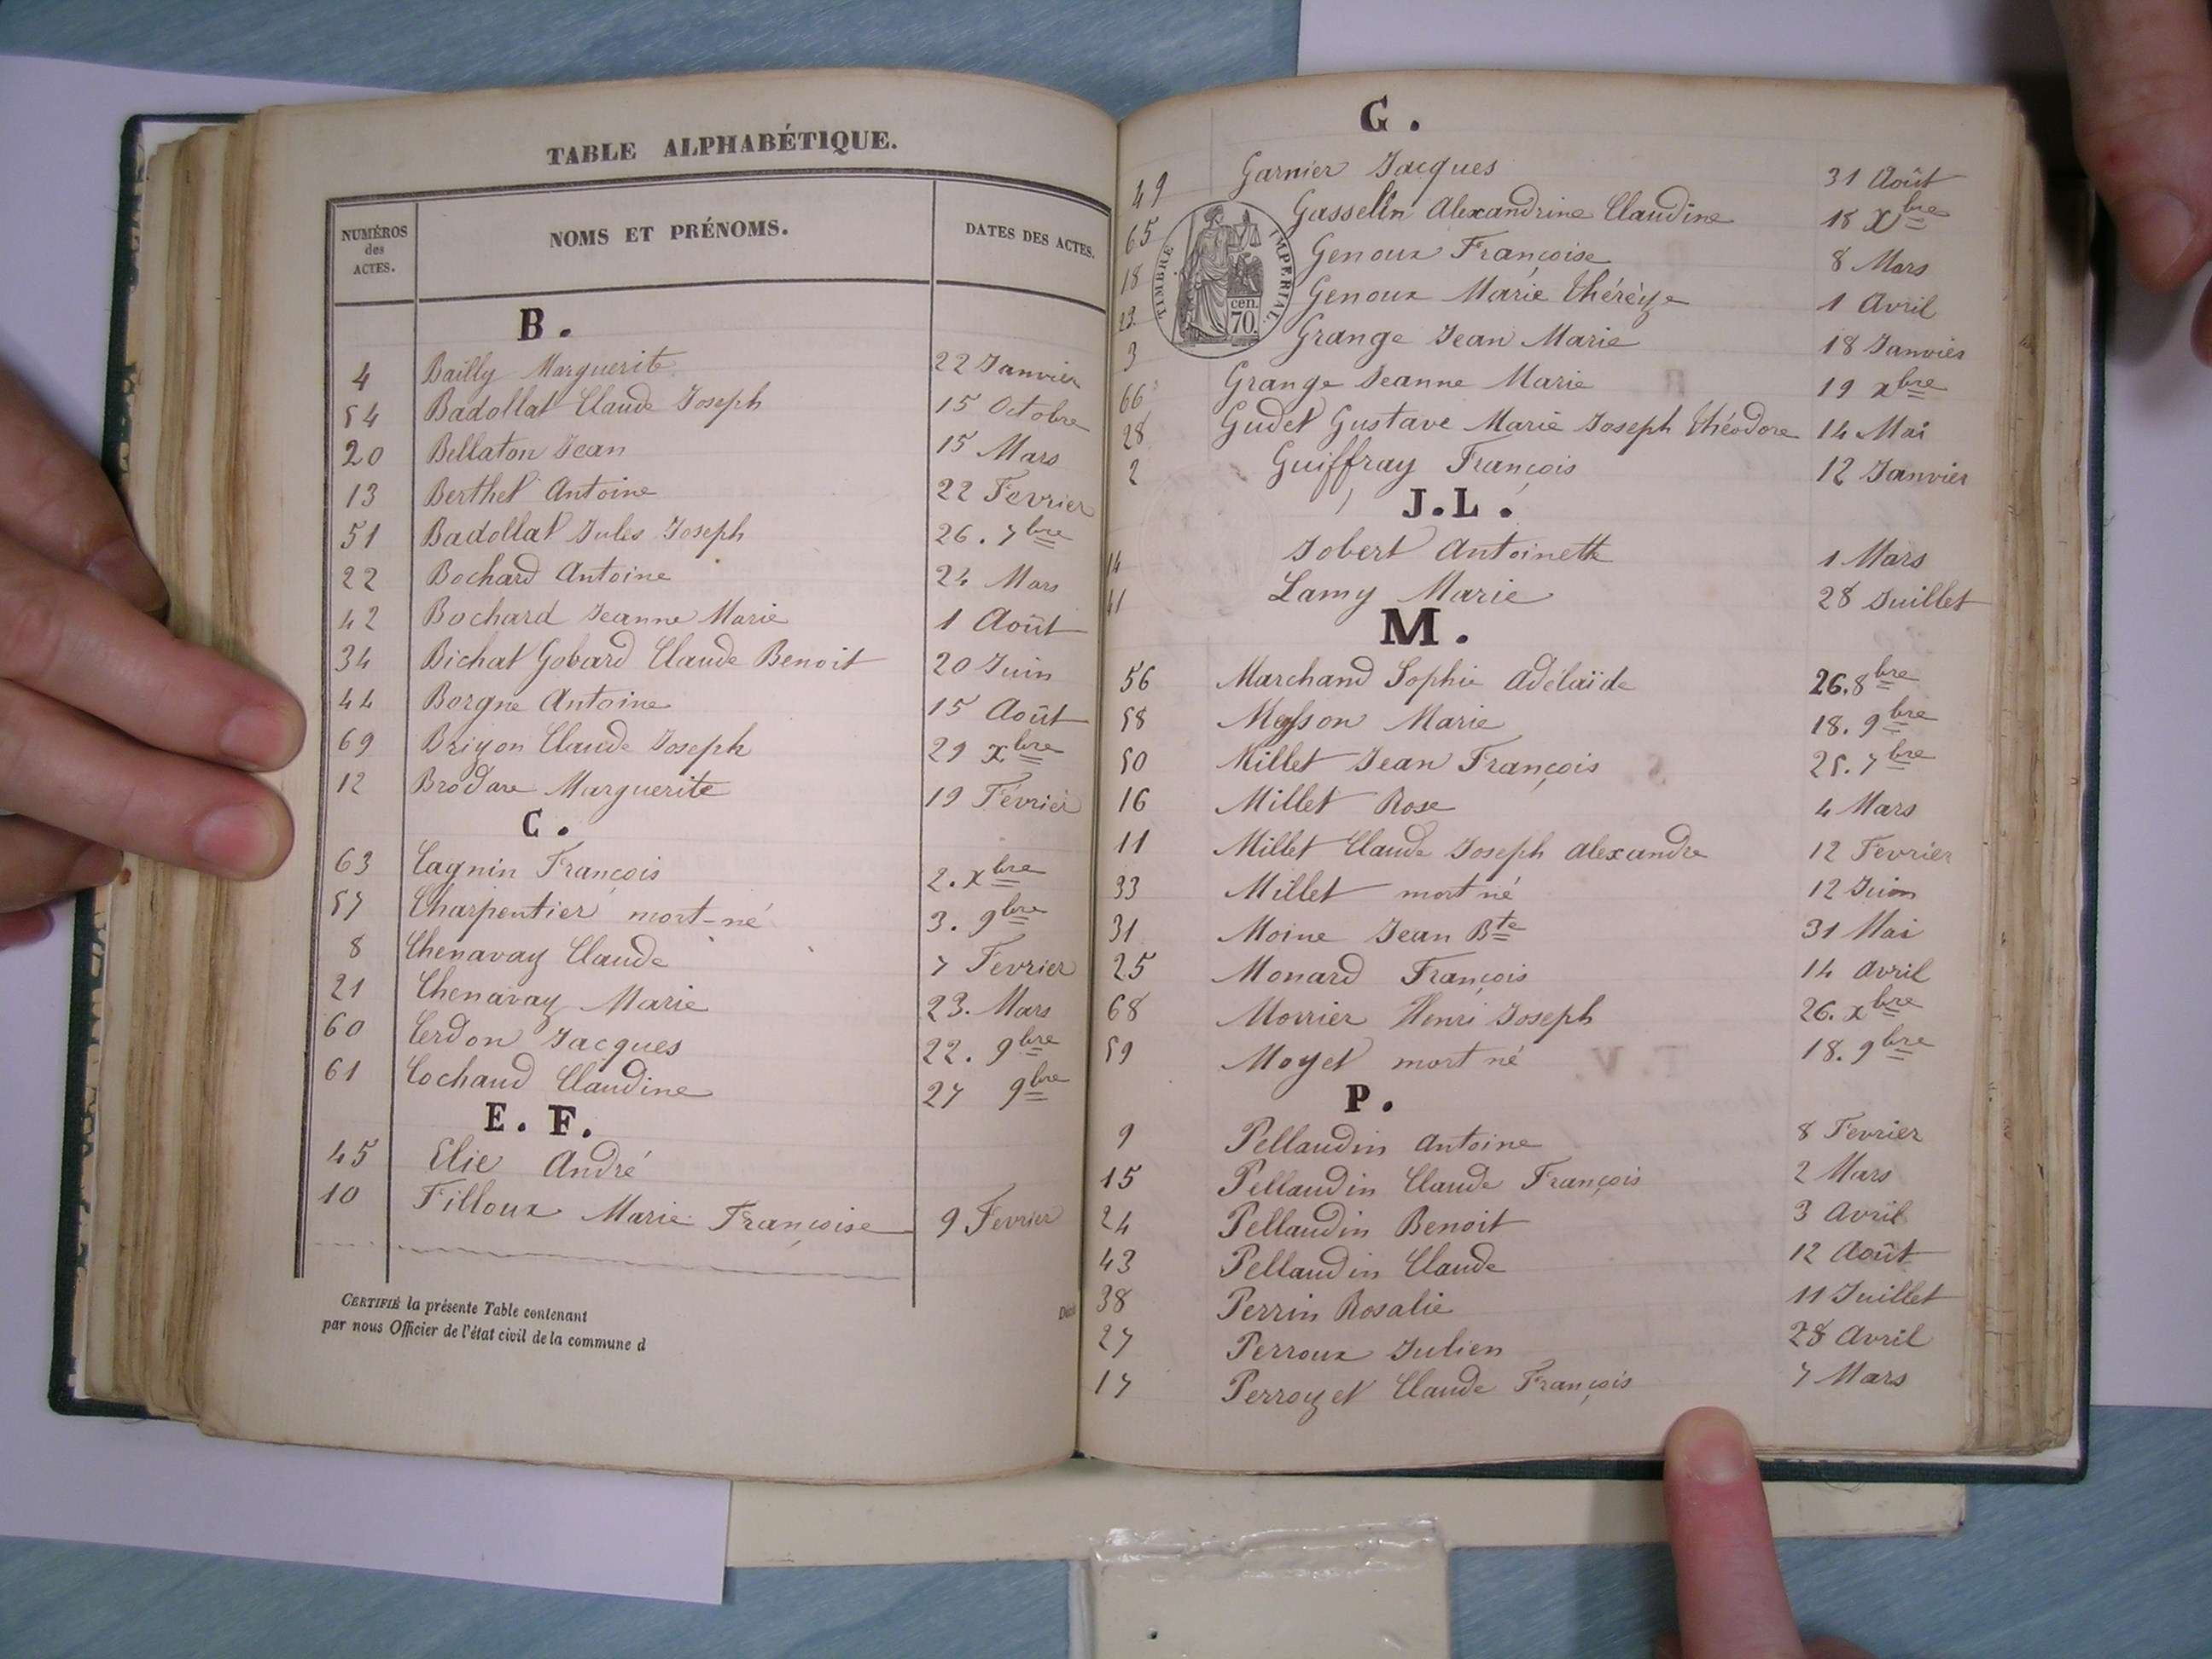 TABLE ALPHABÉTIQUE.
NUMÉROS des ACTES. NOMS ET PRÉNOMS. DATES DES ACTES.
B.
4 Bailly Marguerite 22 Janvier
54 Badollat Claude Joseph 15 Octobre
20 Bellaton Jean 15 Mars
13 Berthet Antoine 22 Fevrier
51 Badollat Jules Joseph 26. 7bre
22 Bochard Antoine 24 Mars
42 Bochard Jeanne Marie 1 Août
34 Bichat Gobard Claude Benoit 20 Juin
44 Borgne Antoine 15 Août
69 Brizon Claude Joseph 29 xbre
12 Brodare Marguerite 19 Février
C.
63 Cagnin François 2. xbre
57 Charpentier mort-né 3. 9bre
8 Chenavaz Claude 7 Fevrier
21 Chenavaz Marie 23. Mars
60 Cerdon Jacques 22. 9bre
61 Cochaud Claudine 27 9bre
E. F.
45 Elie André
10 Filloux Marie Françoise 9 Fevrier
CERTIFIÉ la présente Table contenant
par nous Officier de l'état civil de la commune d
G.
49 Garnier Jacques 31 Août
65 Gasselin Alexandrine Claudine 18 Xbre
18 Genoux Françoise 8 Mars
23 Genoux Marie Thérèze 1 Avril
3 Grange Jean Marie 18 Janvier
TIMBRE IMPÉRIAL.
cen.
70.
66 Grange Jeanne Marie 19 xbre
28 Gudet Gustave Marie Joseph Théodore 14 Mai
2 Guiffray François 12 Janvier
J.L.
14 Jobert Antoinette 1 Mars
41 Lamy Marie 28 Juillet
M.
56 Marchand Sophie Adélaïde 26.8bre
58 Meysson Marie 18. 9bre
50 Millet Jean François 25. 7bre
16 Millet Rose 4 Mars
11 Millet Claude Joseph Alexandre 12 Fevrier
33 Millet mort né 12 Juin
31 Moine Jean Bte 31 Mai
25 Monard François 14 Avril
68 Morrier Henri Joseph 26. xbre
59 Moyet mort né 18. 9bre
P.
9 Pellaudin Antoine 8 Fevrier
15 Pellaudin Claude François 2 Mars
24 Pellaudin Benoit 3 Avril
43 Pellaudin Claude 12 Août
38 Perrin Rosalie 11 Juillet
27 Perroux Julien 28 Avril
17 Perrozet Claude François 7 Mars